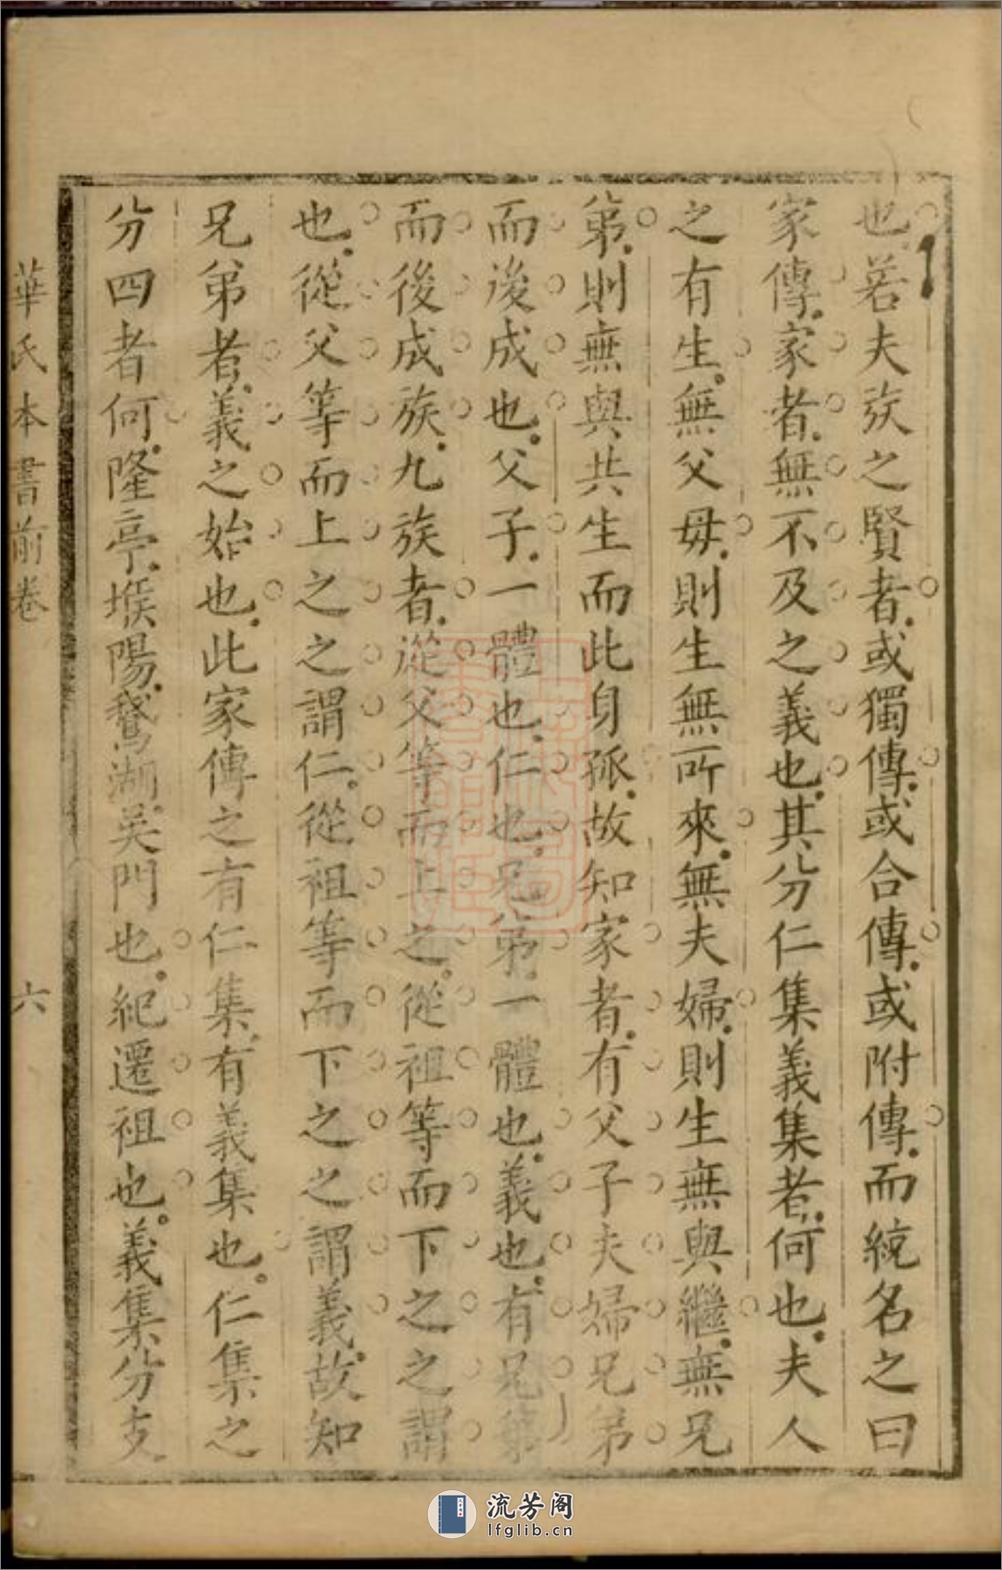 也若夫族之賢者或獨傳或合傳或附傳而統名之曰
家傳家者無不及之義也其分仁集義集者何也夫人
之有生無父母則生無所來無夫婦則生無與繼無兄
弟則無與共生而此身孤故知家者有父子夫婦兄弟
而後成也父子一體也仁也兄弟一體也義也有兄弟
而後成族九族者從父等而上之從祖等而下之之謂
也從父等而上之之謂仁從祖等而下之之謂義故知
兄弟者義之始也此家傳之有仁集有義集也仁集之
分四者何隆亭堠陽鵞湖吳門也紀遷祖也義集分支
華氏本書前卷
六
流芳阁
lfglib.cn